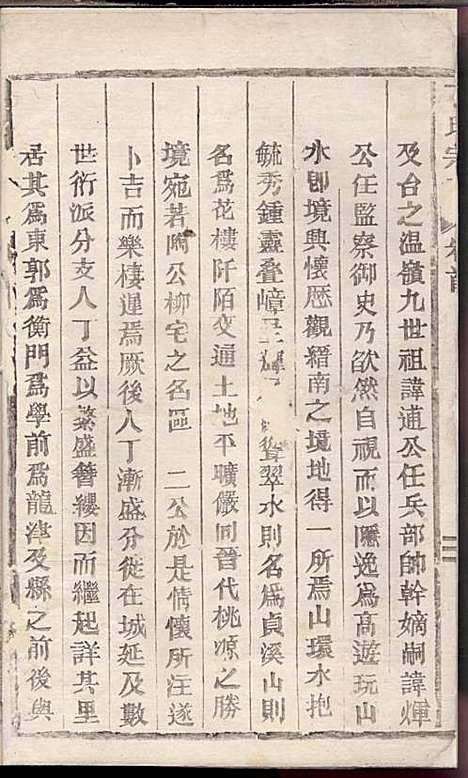 氏宗
卷首
及台之温嶺九世祖諱通公任兵部帥幹嫡嗣諱煇
公任監察御史乃欲然自視而以隱逸為高遊玩山
水即境興懷歷觀縉南之境地得一所焉山環水抱
毓秀鍾靈叠嶂聳翠水則名為貞溪山則
名為花樓阡陌交通土地平曠儼同晉代桃源之勝
境宛若陶公柳宅之名區 二公於是情懷所注遂
卜吉而樂棲運焉厥後人丁漸盛分徙在城延及數
世衍派分支人丁益以繁盛簪纓因而繼起詳其里
居其為東郭為衡門為學前為龍津及縣之前後與